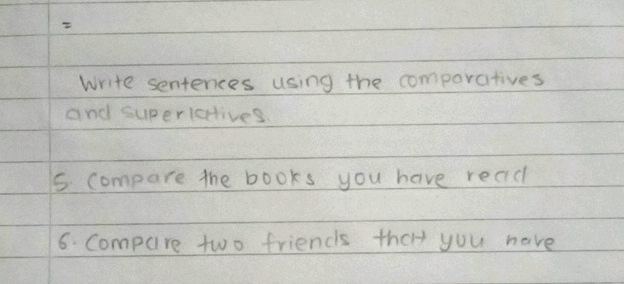 =
Write sentences using the comparatives
and superlatives.
5. Compare the books you have read
6. Compare two friends that you have